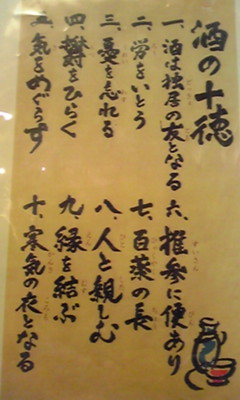 酒の十徳
一、酒は独居の友となる
二、労をいとう
三、憂を忘れる
四、鬱をひらく
五、気をめぐらす
六、推参に便あり
七、百薬の長
八、人と親しむ
九、縁を結ぶ
十、寒気の衣となる